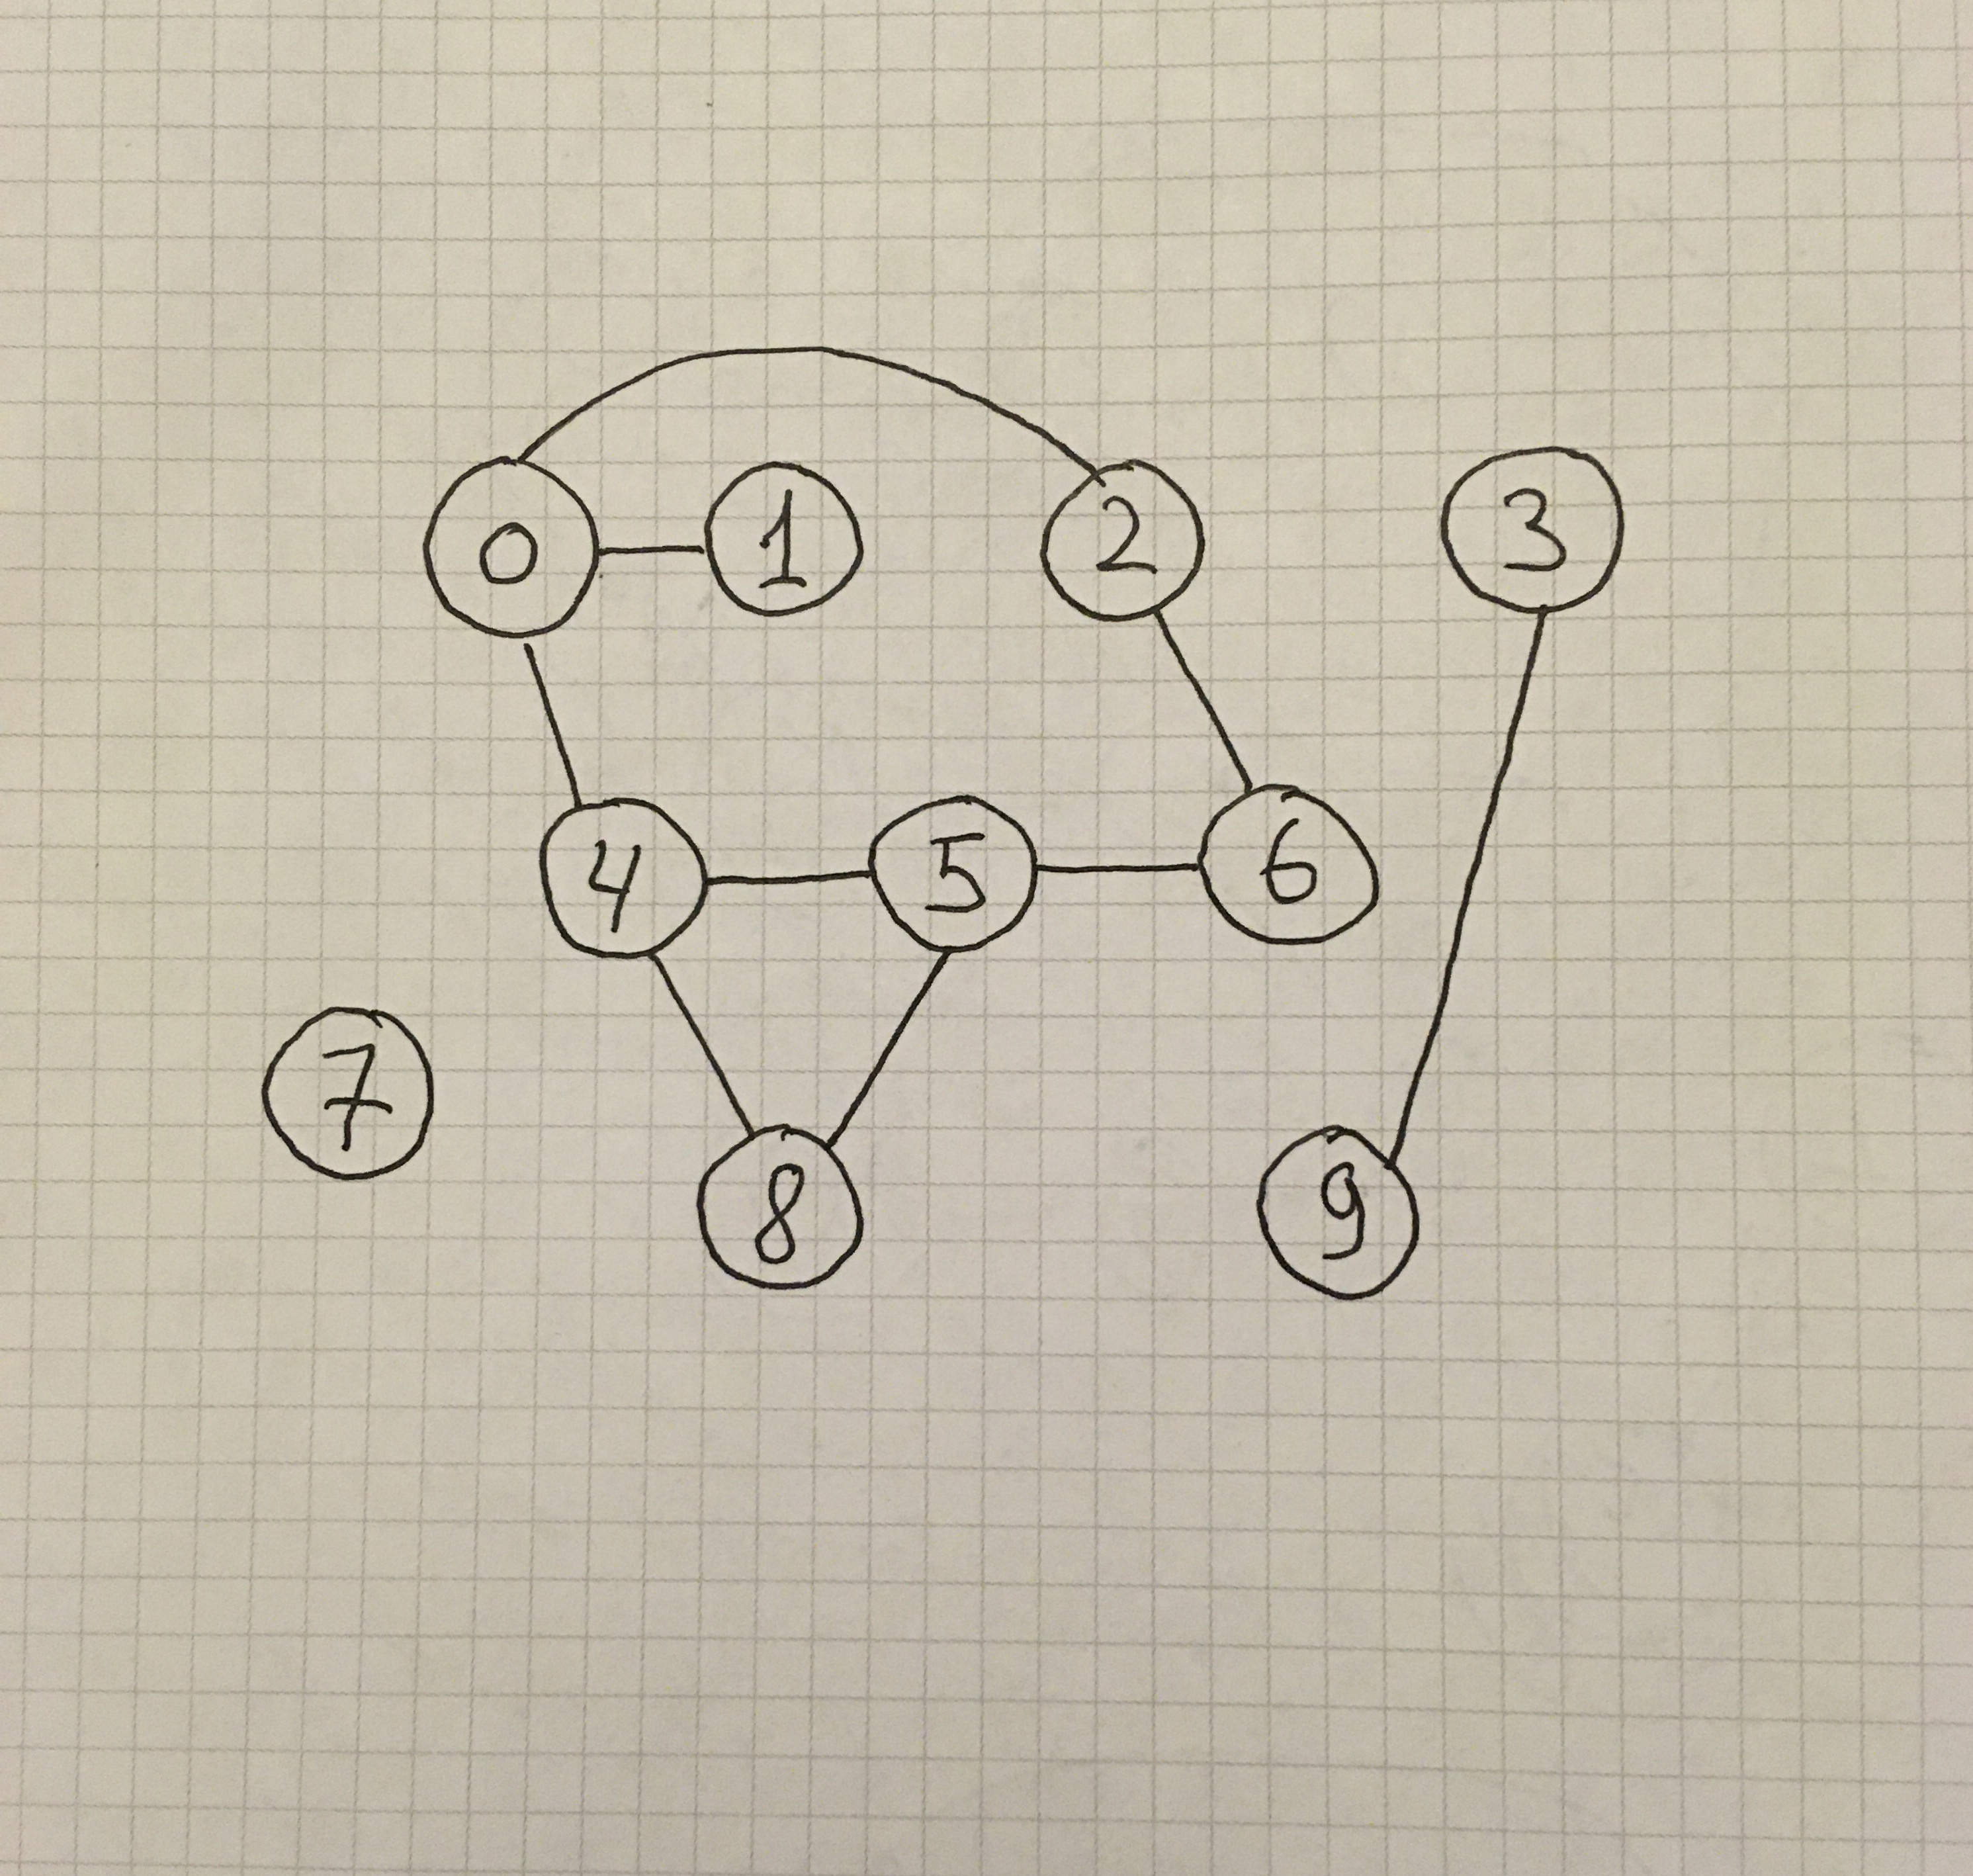 0 1 2 3
4 5 6
7
8 9